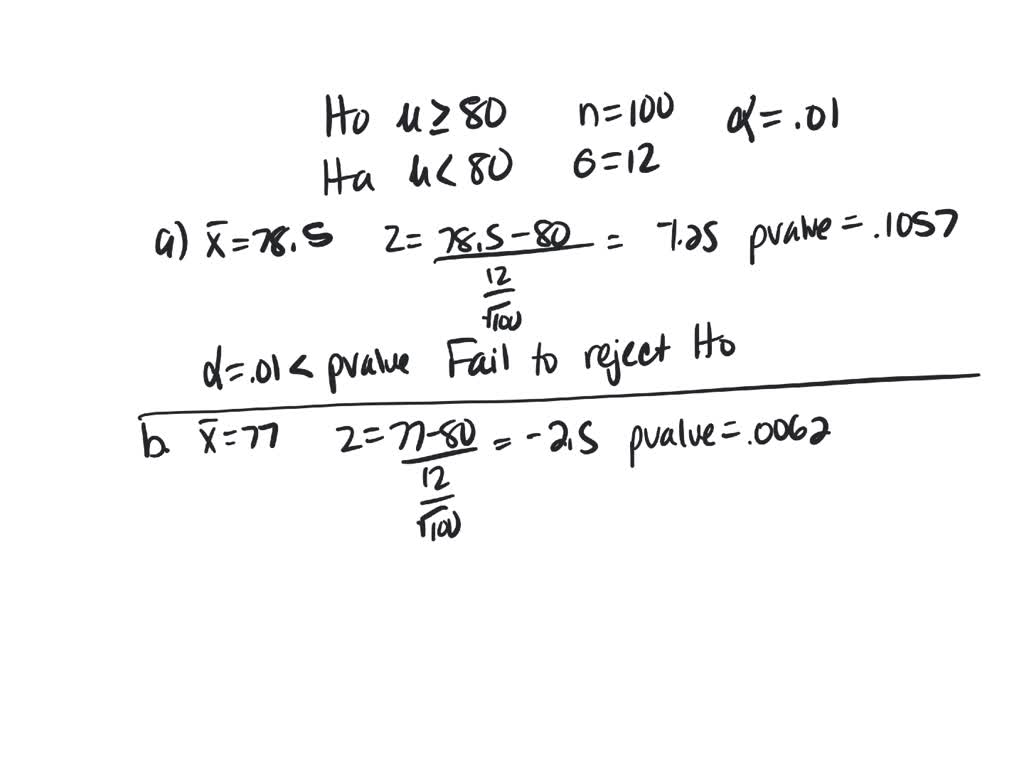 Ho μ ≥ 80 n=100 α=.01
Ha μ < 80 σ=12
a) x̄=78.5 z= (78.5-80)/(12/√100) = 7.25 pvalue=.1057
α=.01 < pvalue Fail to reject Ho
b. x̄=77 z= (77-80)/(12/√100) = -2.5 pvalue=.0062